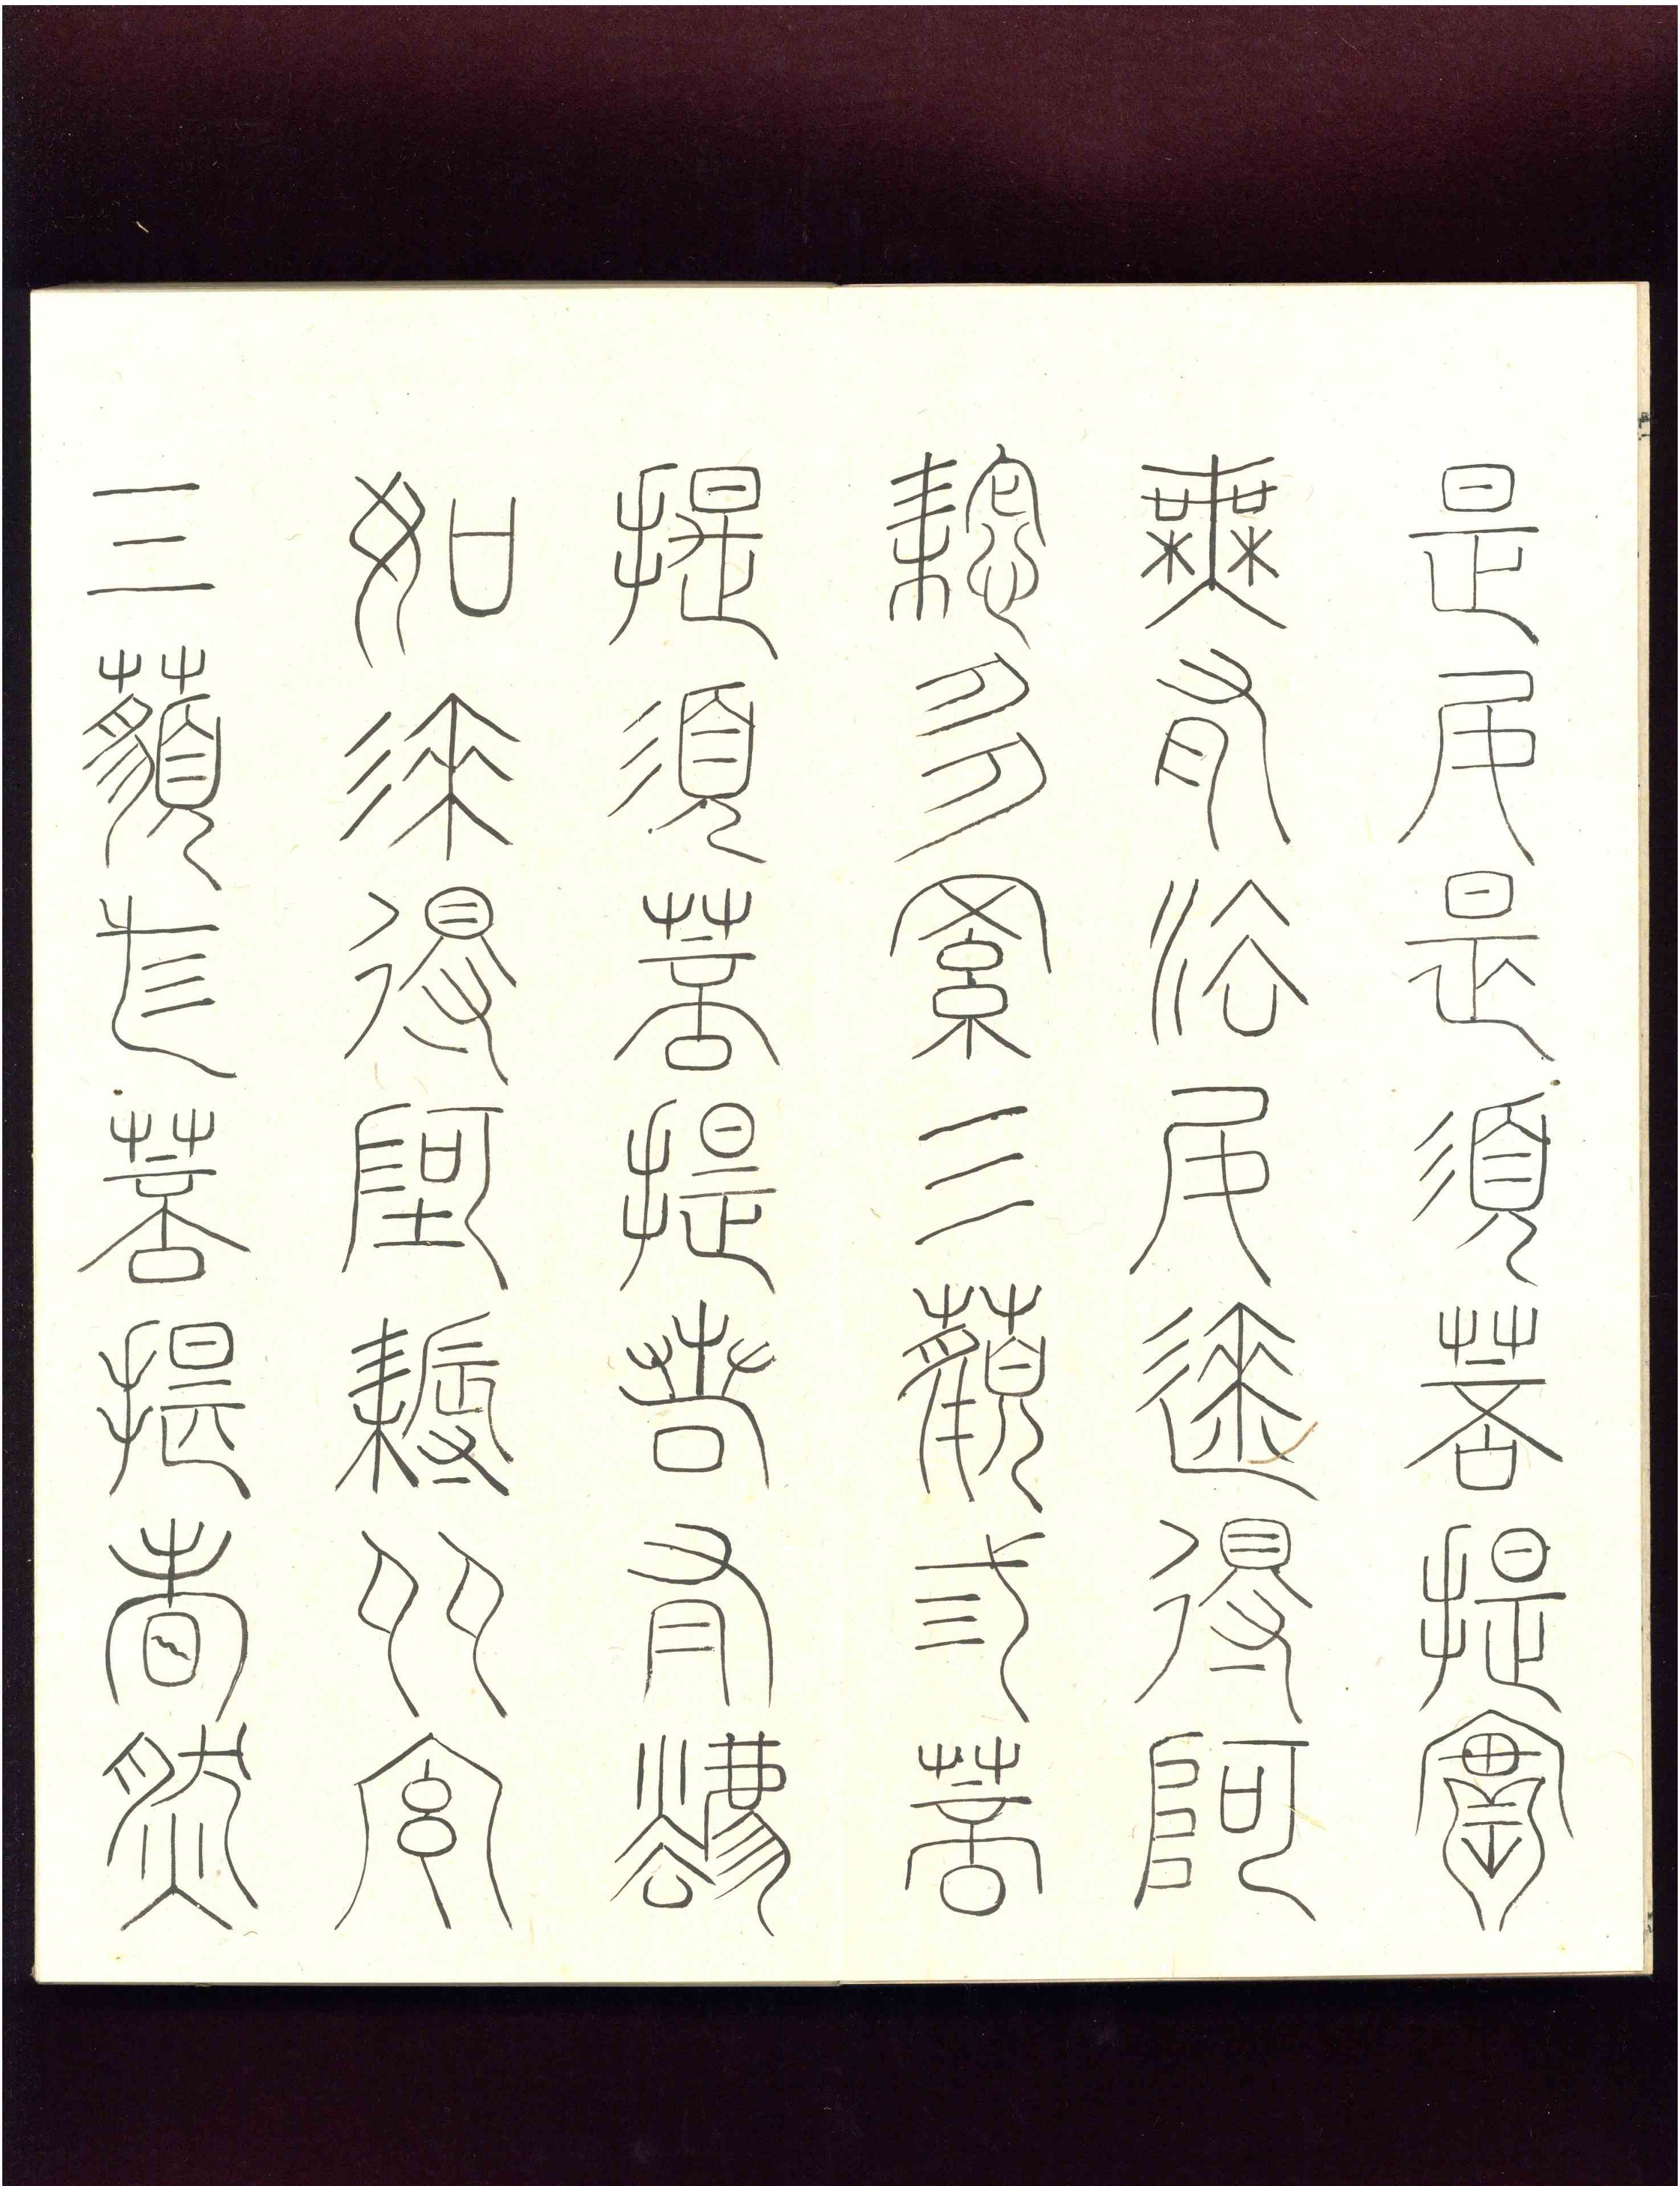 是如是須菩提實
無有法如來得阿
耨多羅三藐三菩
提須菩提若有法
如來得阿耨多羅
三藐三菩提者然